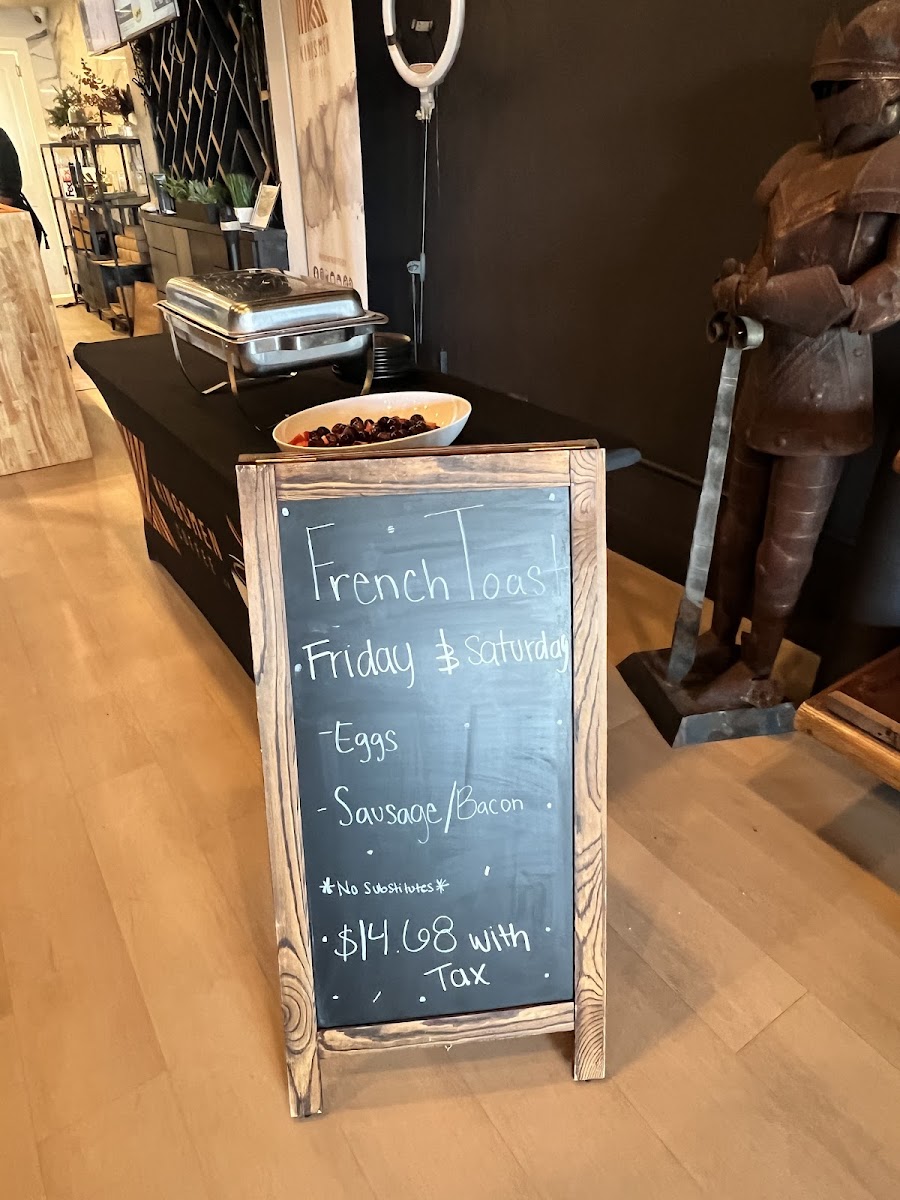 KINGSMEN
KINGSMEN
COFFEE
French Toast
Friday & Saturday
-Eggs
-Sausage/Bacon
*No Substitutes*
$14.68 with
Tax